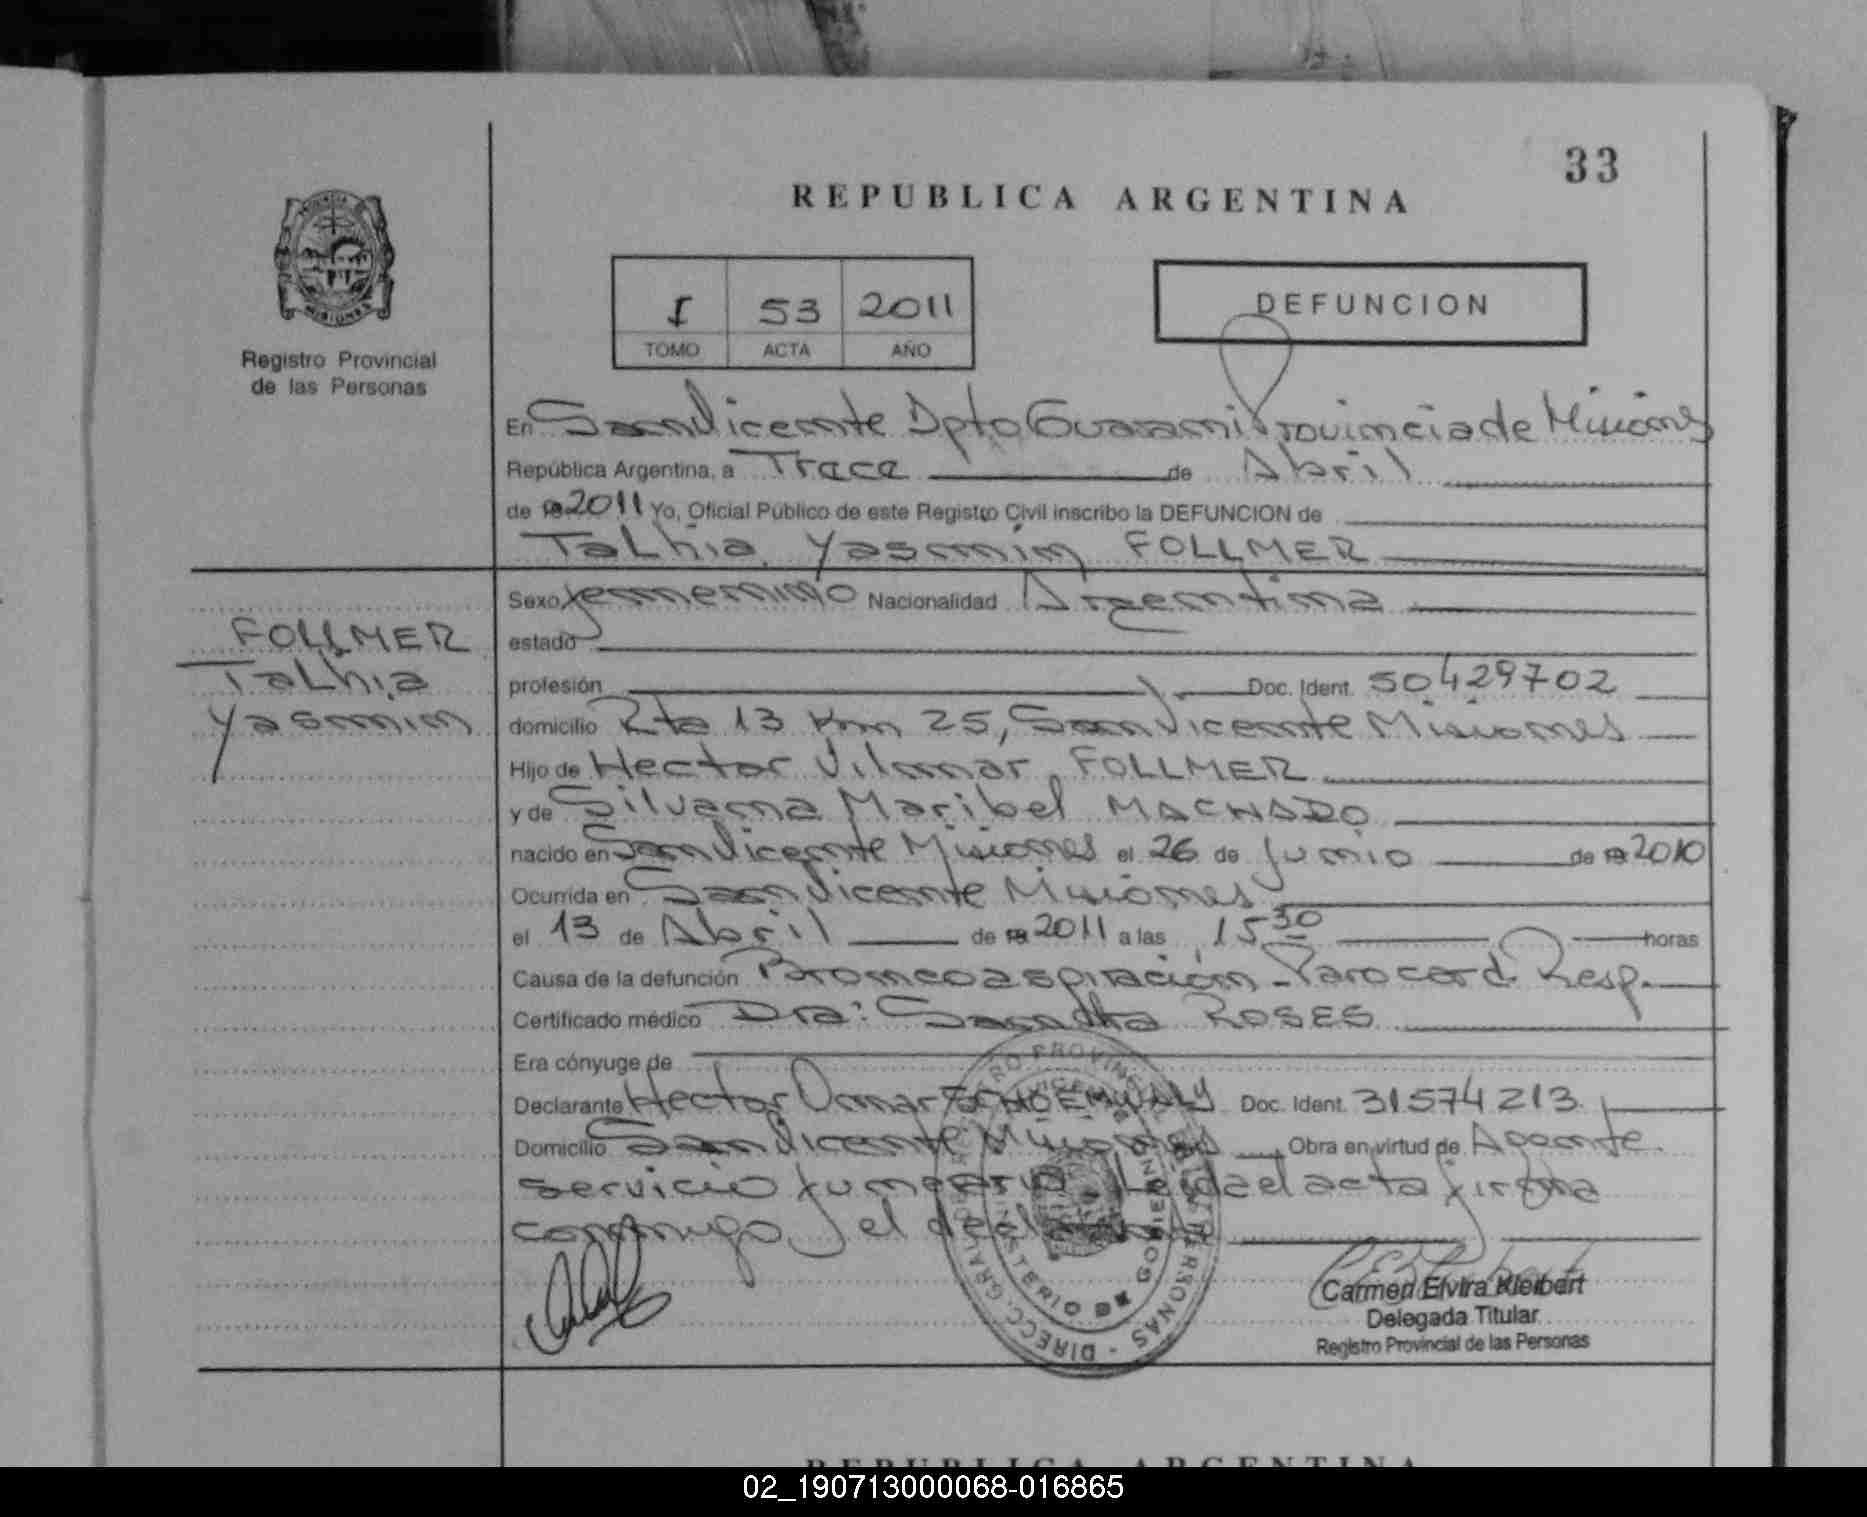 33
REPUBLICA ARGENTINA
I 53 2011
TOMO ACTA AÑO
DEFUNCION
Registro Provincial
de las Personas
En San Vicente Dpto Guarani Provincia de Misiones
República Argentina, a Trece de Abril
de 2011 Yo, Oficial Público de este Registro Civil inscribo la DEFUNCION de
TaLhia Yasmin FOLLMER
FOLLMER
TaLhia
Yasmin
Sexo femenino Nacionalidad Argentina
estado
profesión Doc. Ident. 50429702
domicilio Rta 13 Km 25, San Vicente Misiones
Hijo de Hector Vilmar FOLLMER
y de Silvana Maribel MACHADO
nacido en San Vicente Misiones el 26 de Junio de 19 2010
Ocurrida en San Vicente Misiones
el 13 de Abril de 19 2011 a las 15 30 horas
Causa de la defunción Broncoaspiración - Parocard. Resp.
Certificado médico Dra: Sandra ROSES
Era cónyuge de
Declarante Hector Omar Doc. Ident. 31574213
Domicilio San Vicente Misiones Obra en virtud de Agente
servicio funerario Leida el acta firma
conmigo el declarante
REGISTRO PROVINCIAL DE LAS PERSONAS - DIRECC. GRAL.
MINISTERIO DE GOBIERNO
Carmen Elvira Kleibert
Delegada Titular
Registro Provincial de las Personas
REPUBLICA ARGENTINA
02_190713000068-016865